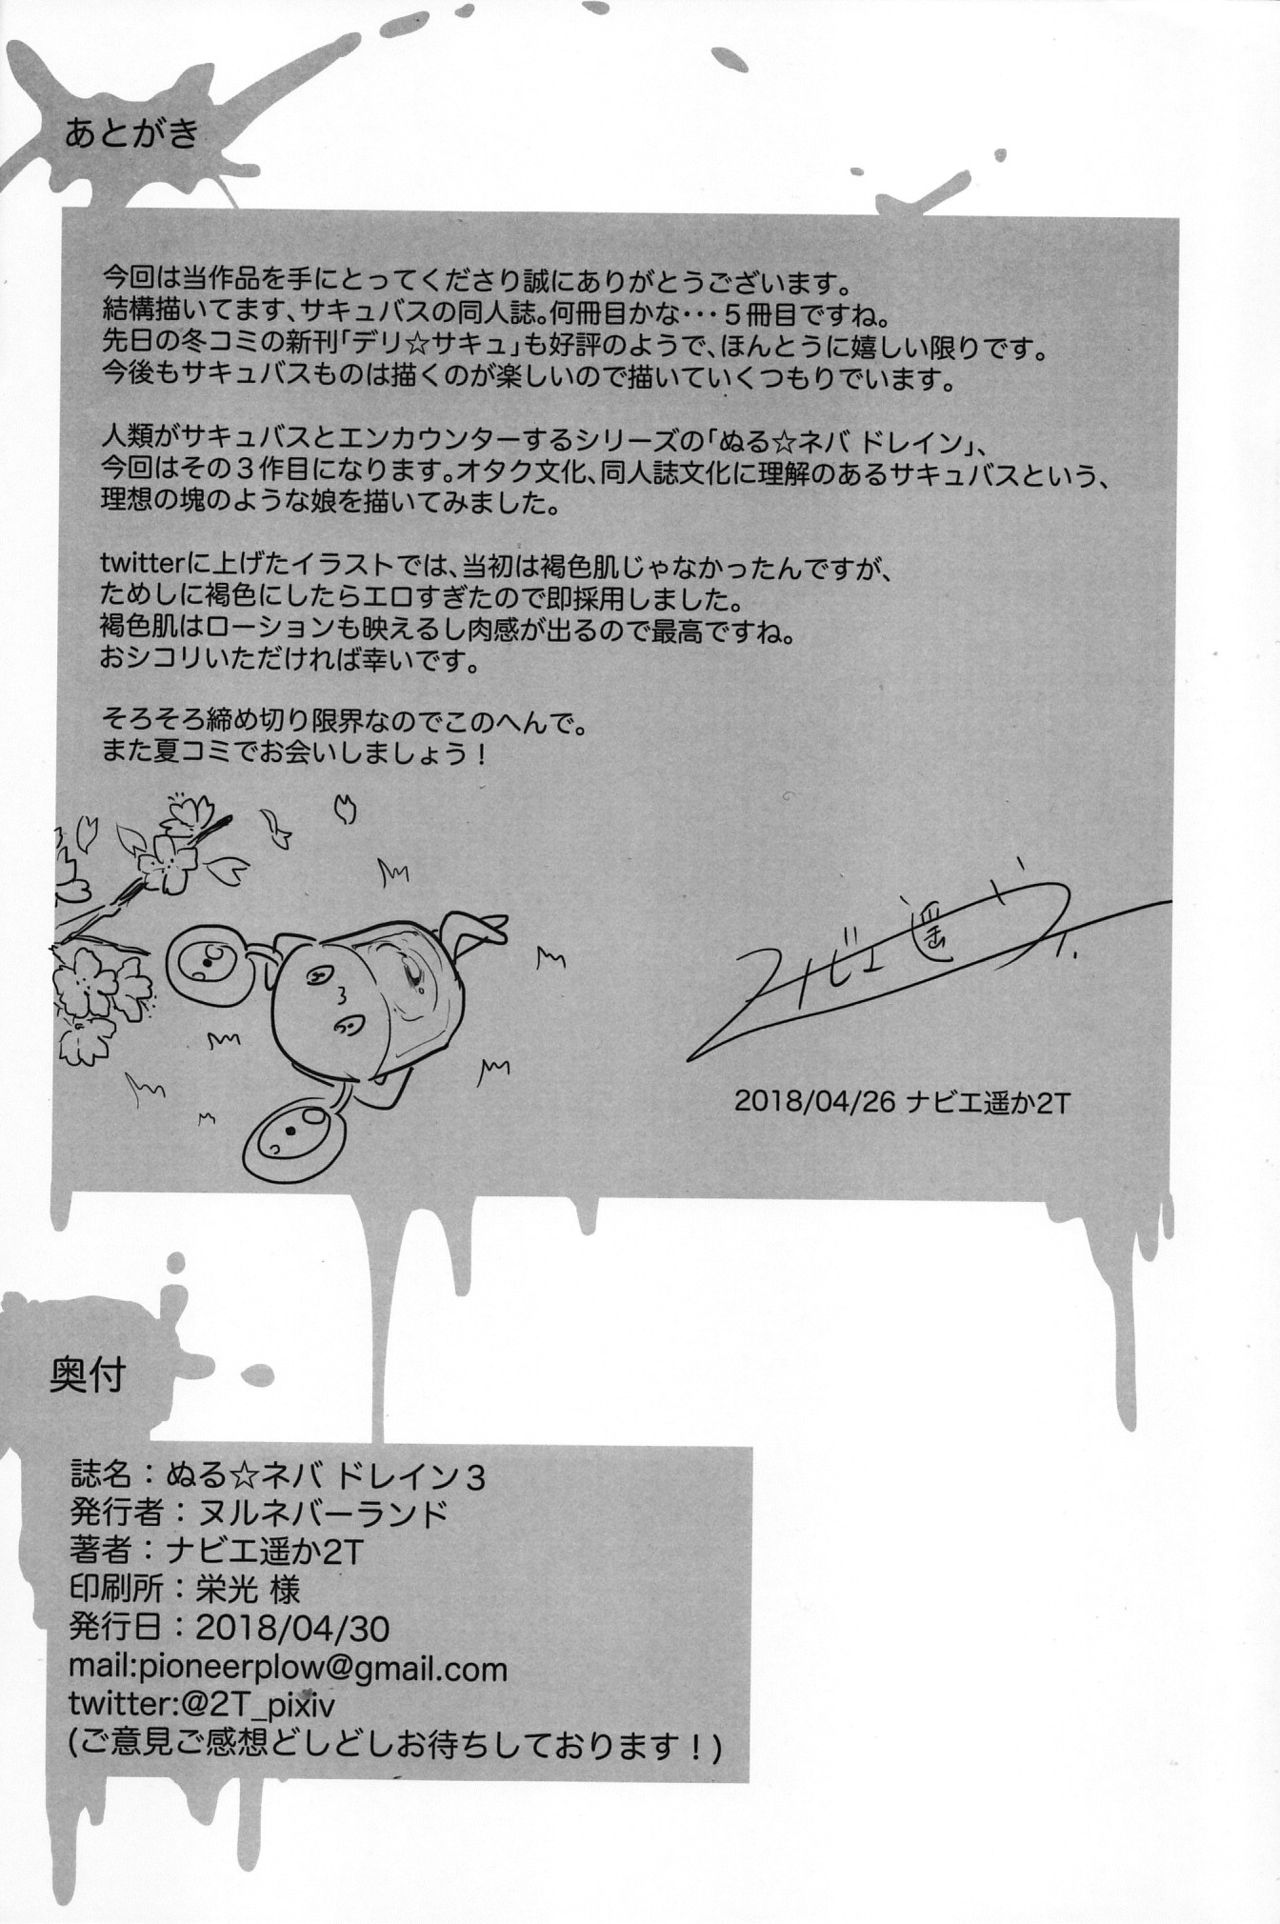 あとがき
今回は当作品を手にとってくださり誠にありがとうございます。
結構描いてます、サキュバスの同人誌。何冊目かな・・・５冊目ですね。
先日の冬コミの新刊「デリ☆サキュ」も好評のようで、ほんとうに嬉しい限りです。
今後もサキュバスものは描くのが楽しいので描いていくつもりでいます。
人類がサキュバスとエンカウンターするシリーズの「ぬる☆ネバ ドレイン」、
今回はその３作目になります。オタク文化、同人誌文化に理解のあるサキュバスという、
理想の塊のような娘を描いてみました。
twitterに上げたイラストでは、当初は褐色肌じゃなかったんですが、
ためしに褐色にしたらエロすぎたので即採用しました。
褐色肌はローションも映えるし肉感が出るので最高ですね。
おシコリいただければ幸いです。
そろそろ締め切り限界なのでこのへんで。
また夏コミでお会いしましょう！
ナビエ遥か2T
2018/04/26 ナビエ遥か2T
奥付
誌名：ぬる☆ネバ ドレイン３
発行者：ヌルネバーランド
著者：ナビエ遥か2T
印刷所：栄光 様
発行日：2018/04/30
mail:pioneerplow@gmail.com
twitter:@2T_pixiv
(ご意見ご感想どしどしお待ちしております！)